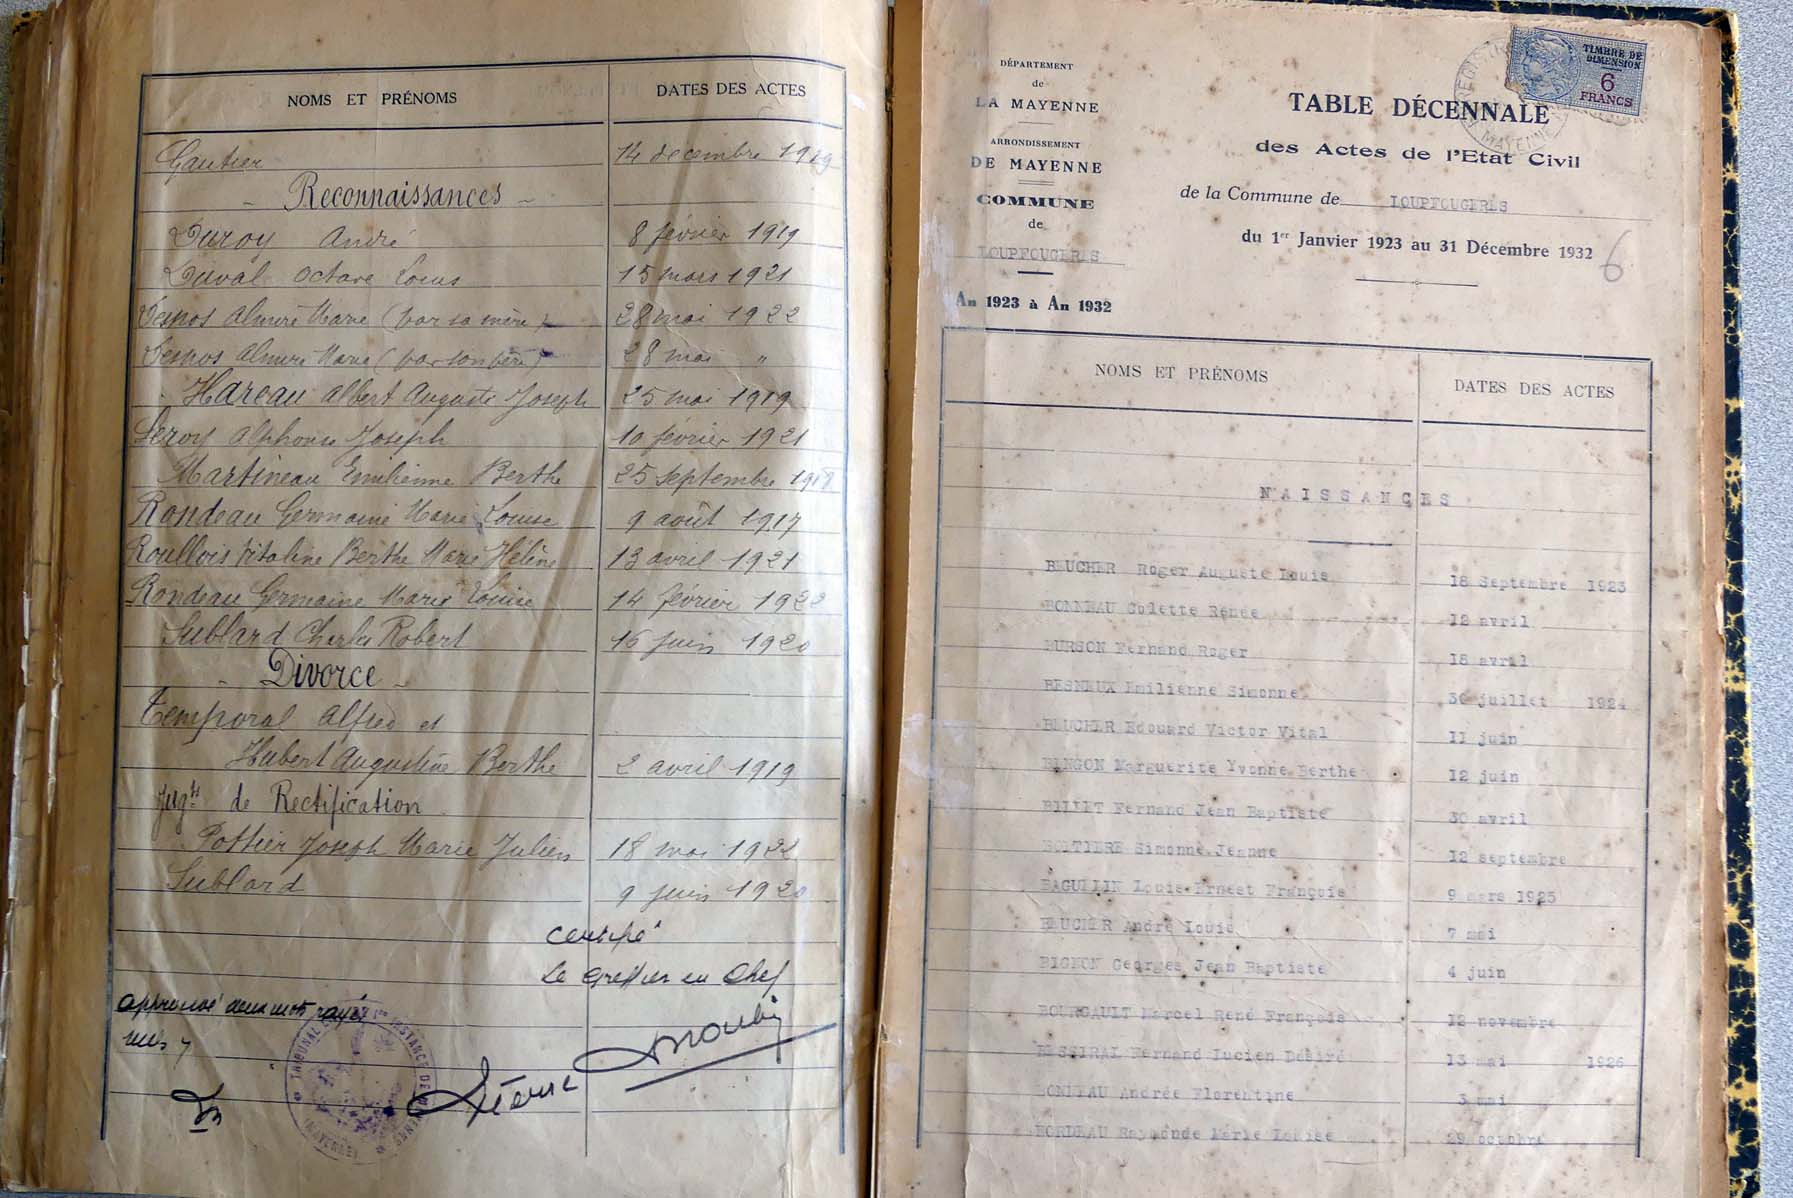 NOMS ET PRÉNOMS
DATES DES ACTES
Gautier 14 décembre 1919
- Reconnaissances -
Duroy André 8 février 1919
Duval Octave Louis 15 mars 1921
Almire Marie (par sa mère) 28 mai 1922
Almire Marie (par son père) 28 mai "
Hareau Albert Auguste Joseph 25 mai 1919
Leroy Alphonse Joseph 10 février 1921
Martineau Emilienne Berthe 25 septembre
Rondeau Germaine Marie Louise 9 août 1917
Roullois Vitaline Berthe Marie Hélène 13 avril 1921
Rondeau Germaine Marie Louise 14 février 1922
Sublard Charles Robert 16 juin 1920
- Divorce -
Temporal Alfred et
Hubert Augustine Berthe 2 avril 1919
Jugts de Rectification
Pottier Joseph Marie Julien 18 mai 1922
Sublard 9 juin 1920
Certifié
Le Greffier en Chef
Approuvé deux mots rayés
nuls
DÉPARTEMENT
de
LA MAYENNE
ARRONDISSEMENT
DE MAYENNE
COMMUNE
de
LOUPFOUGERES
An 1923 à An 1932
TIMBRE DE
DIMENSION
6
FRANCS
TABLE DÉCENNALE
des Actes de l'Etat Civil
de la Commune de LOUPFOUGERES
du 1er Janvier 1923 au 31 Décembre 1932
6
NOMS ET PRÉNOMS
DATES DES ACTES
NAISSANCES
BEUCHER Roger Auguste Louis 18 Septembre 1923
BONNEAU Colette Renée 12 avril
BURSON Fernand Roger 18 avril
BESNEUX Emilienne Simonne 30 juillet 1924
BEUCHER Edouard Victor Vital 11 juin
BINGON Marguerite Yvonne Berthe 12 juin
BILLET Fernand Jean Baptiste 30 avril
BOITIERE Simonne Jeanne 12 septembre
BAGUELIN Louis Ernest François 9 mars 1925
BEUCHER André Louis 7 mai
BIGNON Georges Jean Baptiste 4 juin
BOURGAULT Marcel René François 12 novembre
BESSIRAL Fernand Lucien Désiré 13 mai 1926
BONNEAU Andrée Florentine 3 mai
BORDEAU Raymonde Marie Louise 29 octobre